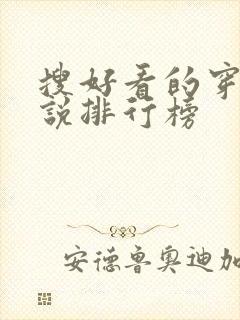 搜好看的穿
説排行榜
安德鲁奥迪加